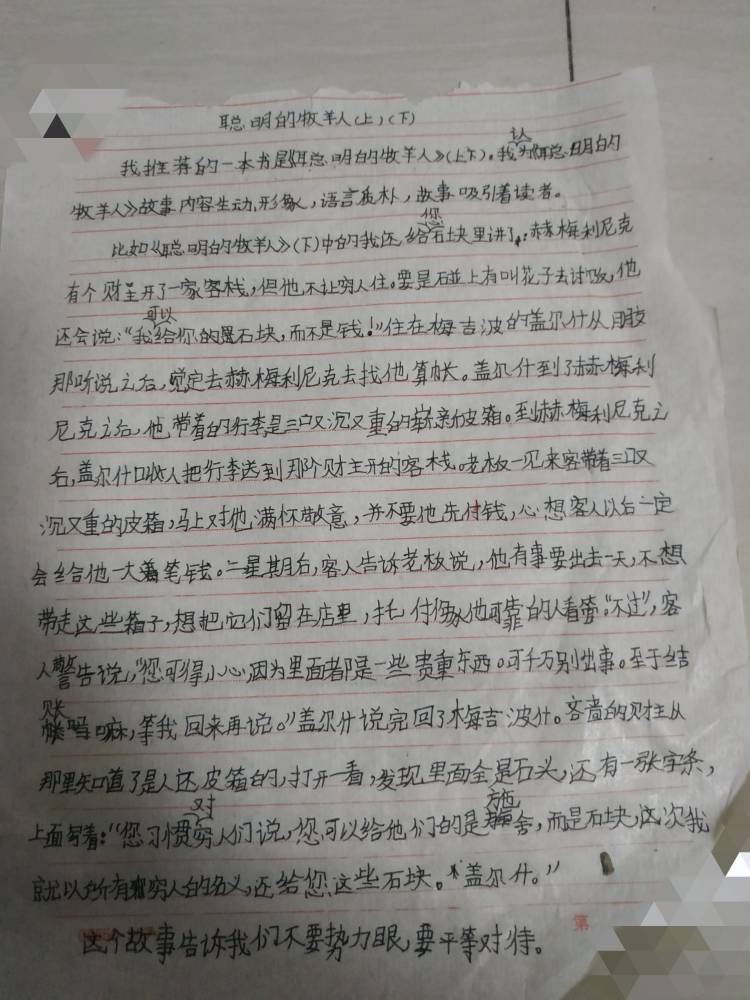 聪明的牧羊人(上)(下)
我推荐的一本书是《聪明的牧羊人》(上下)。我认为《聪明的
牧羊人》故事内容生动,形象,语言质朴,故事吸引着读者。
比如《聪明的牧羊人》(下)中的我还您石块里讲了:赫梅利尼克
有个财主开了一家客栈,但他不让穷人住。要是碰上有叫花子去讨饭,他
还会说:“我可以给你的是石块,而不是钱!”住在梅吉波的盖尔什从
那听说之后,决定去赫梅利尼克去找他算帐。盖尔什到了赫梅利
尼克之后,他带着的行李是三只又沉又重的崭新皮箱。到赫梅利尼克之
后,盖尔什吩咐人把行李送到那个财主开的客栈。老板一见来客带着三只又
沉又重的皮箱,马上对他满怀敬意,并不要他先付钱,心想客人以后一定
会给他一大笔钱。一星期后,客人告诉老板说,他有事要出去一天,不想
带走这些箱子,想把它们留在店里,托付给其他可靠的人看管。“不过”,客
人警告说,“您可得小心,因为里面都是一些贵重东西。可千万别出事。至于结
账吗嘛,等我回来再说。”盖尔什说完回了梅吉波什。吝啬的财主从
那里知道了是人还皮箱的,打开一看,发现里面全是石头,还有一张字条,
上面写着:“您习惯对穷人们说,您可以给他们的是施舍,而是石块,这次我
就以所有穷人的名义,还给您这些石块。盖尔什。”
这个故事告诉我们不要势力眼,要平等对待。
第